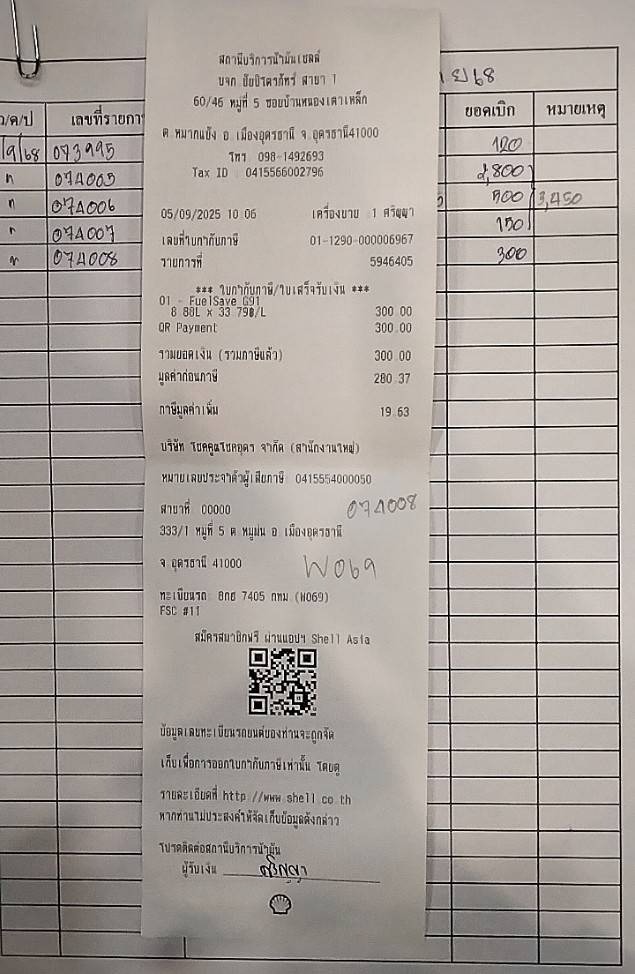 ย68
ว/ด/ป เลขที่รายกา ยอดเบิก หมายเหตุ
/9/68 073995 120
" 074005 2,800
" 074006 500 3,450
" 074007 150
" 074008 300
สถานีบริการน้ำมันเชลล์
60/46 หมู่ที่ 5 ซอยบ้านหนองเตาเหล็ก
ต หมากแข้ง อ เมืองอุดรธานี จ อุดรธานี41000
โทร 098-1492693
Tax ID 0415566002796
05/09/2025 10 06 เครื่องขาย 1 ศริญญา
เลขที่ใบกำกับภาษี 01-1290-000006967
รายการที่ 5946405
*** ใบกำกับภาษี/ใบเสร็จรับเงิน ***
01 - FuelSave G91
8 88L x 33 79B/L 300 00
QR Payment 300 00
รวมยอดเงิน (รวมภาษีแล้ว) 300 00
มูลค่าก่อนภาษี 280 37
ภาษีมูลค่าเพิ่ม 19 63
บริษัท โชคคูณโชคอุดร จำกัด (สำนักงานใหญ่)
หมายเลขประจำตัวผู้เสียภาษี 0415554000050
สาขาที่ 00000
074008
333/1 หมู่ที่ 5 ต หมูม่น อ เมืองอุดรธานี
จ อุดรธานี 41000
W069
ทะเบียนรถ 8กธ 7405 กทม (W069)
FSC #11
สมัครสมาชิกฟรี ผ่านแอปฯ Shell Asia
ข้อมูลเลขทะเบียนรถยนต์ของท่านจะถูกจัด
เก็บเพื่อการออกใบกำกับภาษีเท่านั้น โดยดู
รายละเอียดที่ http //www shell co th
หากท่านไม่ประสงค์ให้จัดเก็บข้อมูลดังกล่าว
โปรดติดต่อสถานีบริการน้ำมัน
ผู้รับเงิน ศริญญา